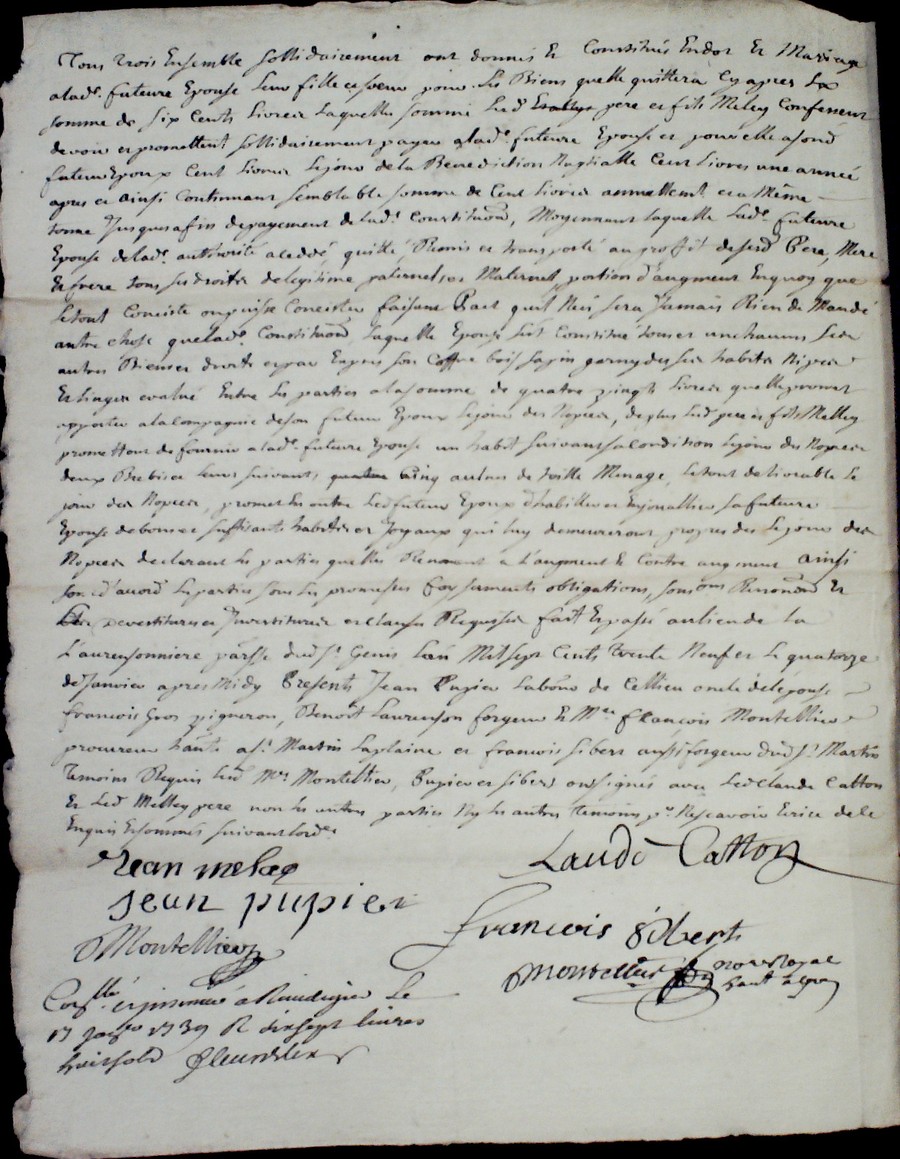 Tous trois Ensemble sollidairement ont donnés Et Constitués Endot Et Mariage
alad.e future Epouse leur fille et soeur pour les Biens quelle quittera cy apres La
somme de six Cents Livres Laquelle somme Led. pere et fils Melley Confessent
devoir et promettent sollidairement payer alad.e future Epouse et pour elle asond
futur Epoux Cent livres lejour de la Benediction Nuptialle Cent livres une année
apres et ainsi Continuant semblable somme de Cent livres annuellement et a Même
terme Jusques afin depayement de lad.e Constituon, Moyennant laquelle lad.e future
Epouse delad.e authorité a ceddé, quitté, Remis et transporté au profit desesd Pere, Mere
Et frere tous ses droits de legitime paternel et Maternel portion d'augment En quoy que
le tout Consiste ou puisse Consister faisant Pact quil Neis sera Jamais Rien de Mandé
autre chose que lad.e Constituon, Laquelle Epouse sest Constitué tous et un chacuns ses
autres Biens et droits et par Expres son Coffre bois sapin garny de ses habits Nipes
Et linges evalué Entre les parties ala somme de quatre vingts livres quelle promet
apporter ala Compagnie de son futur Epoux lejour des Nopces, de plus led pere et fils Melley
promettent de fournir alad.e future Epouse un habit suivant sa Condition lejour des Nopces
deux Brebis et leurs suivants, Cinq aulnes de toille Menage, letout delivrable le
jour des Nopces, promet En outre Led futur Epoux d'habiller et Enjoualler sa future
Epouse de bons et suffisants habits et Joyaux qui luy demeureront propres des le jour des
Nopces declarant les parties quelles Renoncent a l'augment Et Contre augment ainsi
sont d'acord les parties sous les promesses foy serments obligations, soumons Renonons Et
devestitures Investitures et clauses Requises fait Et passé au lieu de la
Laurensonniere parsse dud St. Genis L'an Mil sept Cents trente Neuf et le quatorze
de Janvier apres Midy Presents Jean Pupier Labour de Cellieu oncle de l'epouse
francois Gros vigneron, Benoit Laurenson forgeur Et Me. francois Montellier
procureur hant a St. Martin Laplaine et francois Sibert aussi forgeur dud St. Martin
Temoins Requis Led Mes Montellier, Pupier et Siber ont signés avec Led Claude Catton
Et Led Melley pere non les autres parties Ny les autres Temoins pr. Ne scavoir Ecrire de le
Enquis Et sommés suivant lord.e
Jean meley
Laude Catton
Jean pupier
francois sibert
Montellier
Montellier nore Royal
hant a
Conllé et insinué a Rivedegier Le
17 janvr 1739 R dixsept livres
huit sold fleurdelix